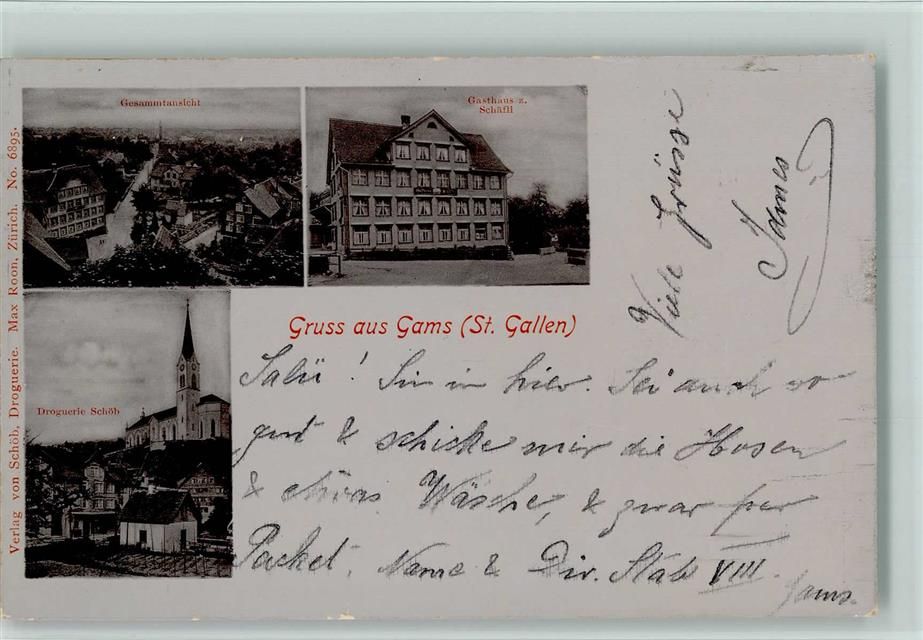 Gesammtansicht
Gasthaus z.
Schäfli
Droguerie Schöb
Verlag von Schöb, Droguerie. Max Roon, Zürich. No. 6895.
Gruss aus Gams (St. Gallen)
Viele Grüsse
Salü! Bin in hier. Sei auch so
gut & schicke mir die Hosen
& etwas Wäsche, & zwar per
Packet. Name & Div. Stab VIII.
Gams.